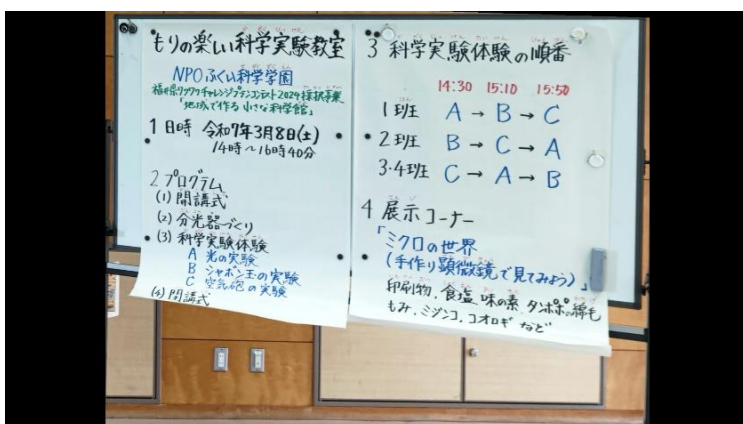 もりの楽しい科学実験教室
NPOふくい科学学園
福井県ワクワクチャレンジプランコンテスト2024採択事業
「地域で作る小さな科学館」
1 日時 令和7年3月8日(土)
14時~16時40分
2 プログラム
(1) 開講式
(2) 分光器づくり
(3) 科学実験体験
A 光の実験
B シャボン玉の実験
C 空気砲の実験
(4) 閉講式
3 科学実験体験の順番
14:30 15:10 15:50
1班 A → B → C
2班 B → C → A
3・4班 C → A → B
4 展示コーナー
「ミクロの世界
(手作り顕微鏡で見てみよう)」
印刷物、食塩、味の素、タンポポの綿毛
もみ、ミジンコ、コオロギ など